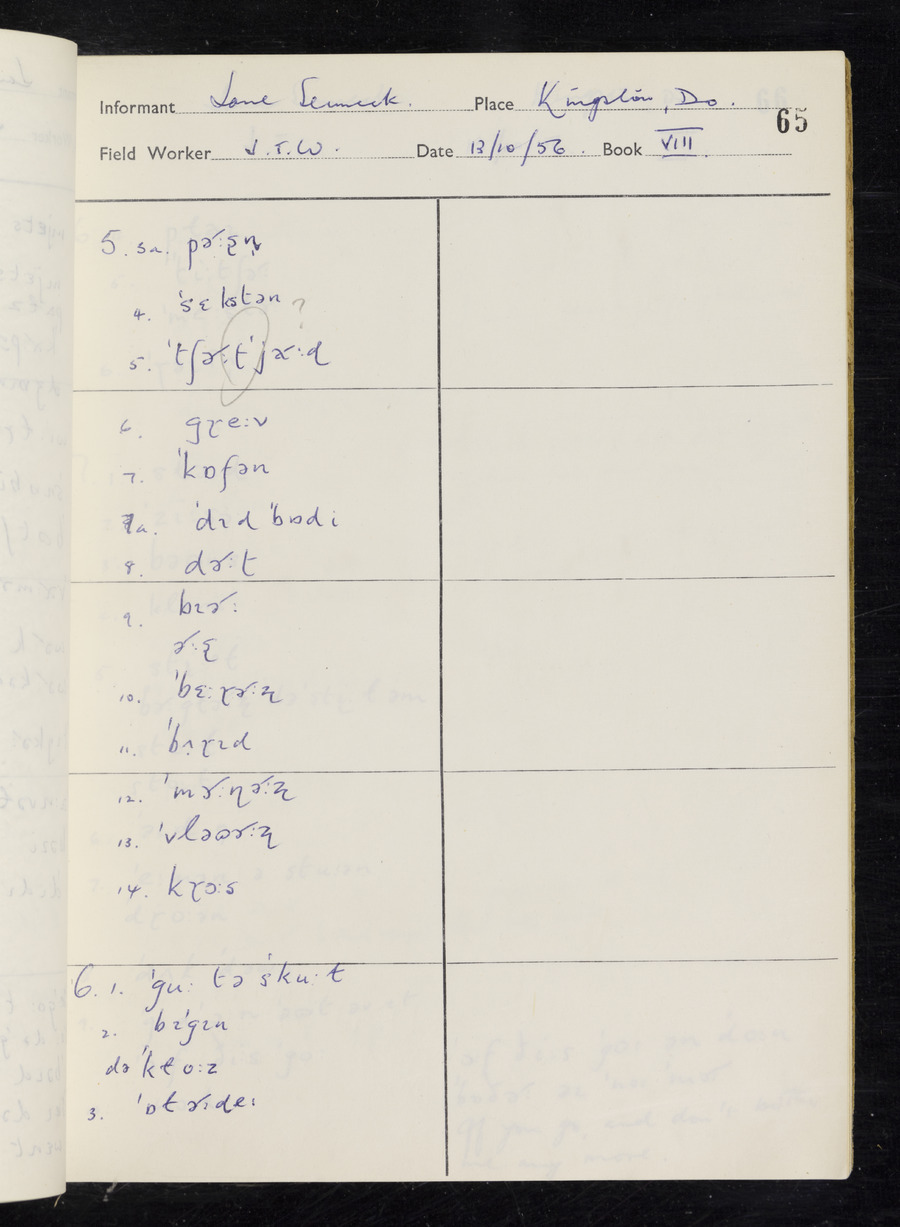 Informant Place Kingston, Do.
65
Field Worker J.T.W. Date 13/10/56. Book VIII
5. 3a. pɚ:ʂɳ
4. ˈsɛkstən ?
5. ˈtʃɚ:tˈjɚ:d
6. gɽe:v
7. ˈkɒfən
7a. ˈdɪdˈbɒdi
8. dɚ:t
9. bɪɚ:
ɚ:ʂ
10. ˈbɛ:ɽɚ:ʐ
11. ˈbɪɽɪd
12. ˈmɚ:ɳɚ:ʐ
13. ˈvləʊɚ:ʐ
14. kɽɔ:s
6. 1. ˈgu: tə ˈsku:t
2. bɪˈgɪn
dəˈktɔ:z
3. ˈɒtɚɪdeɪ